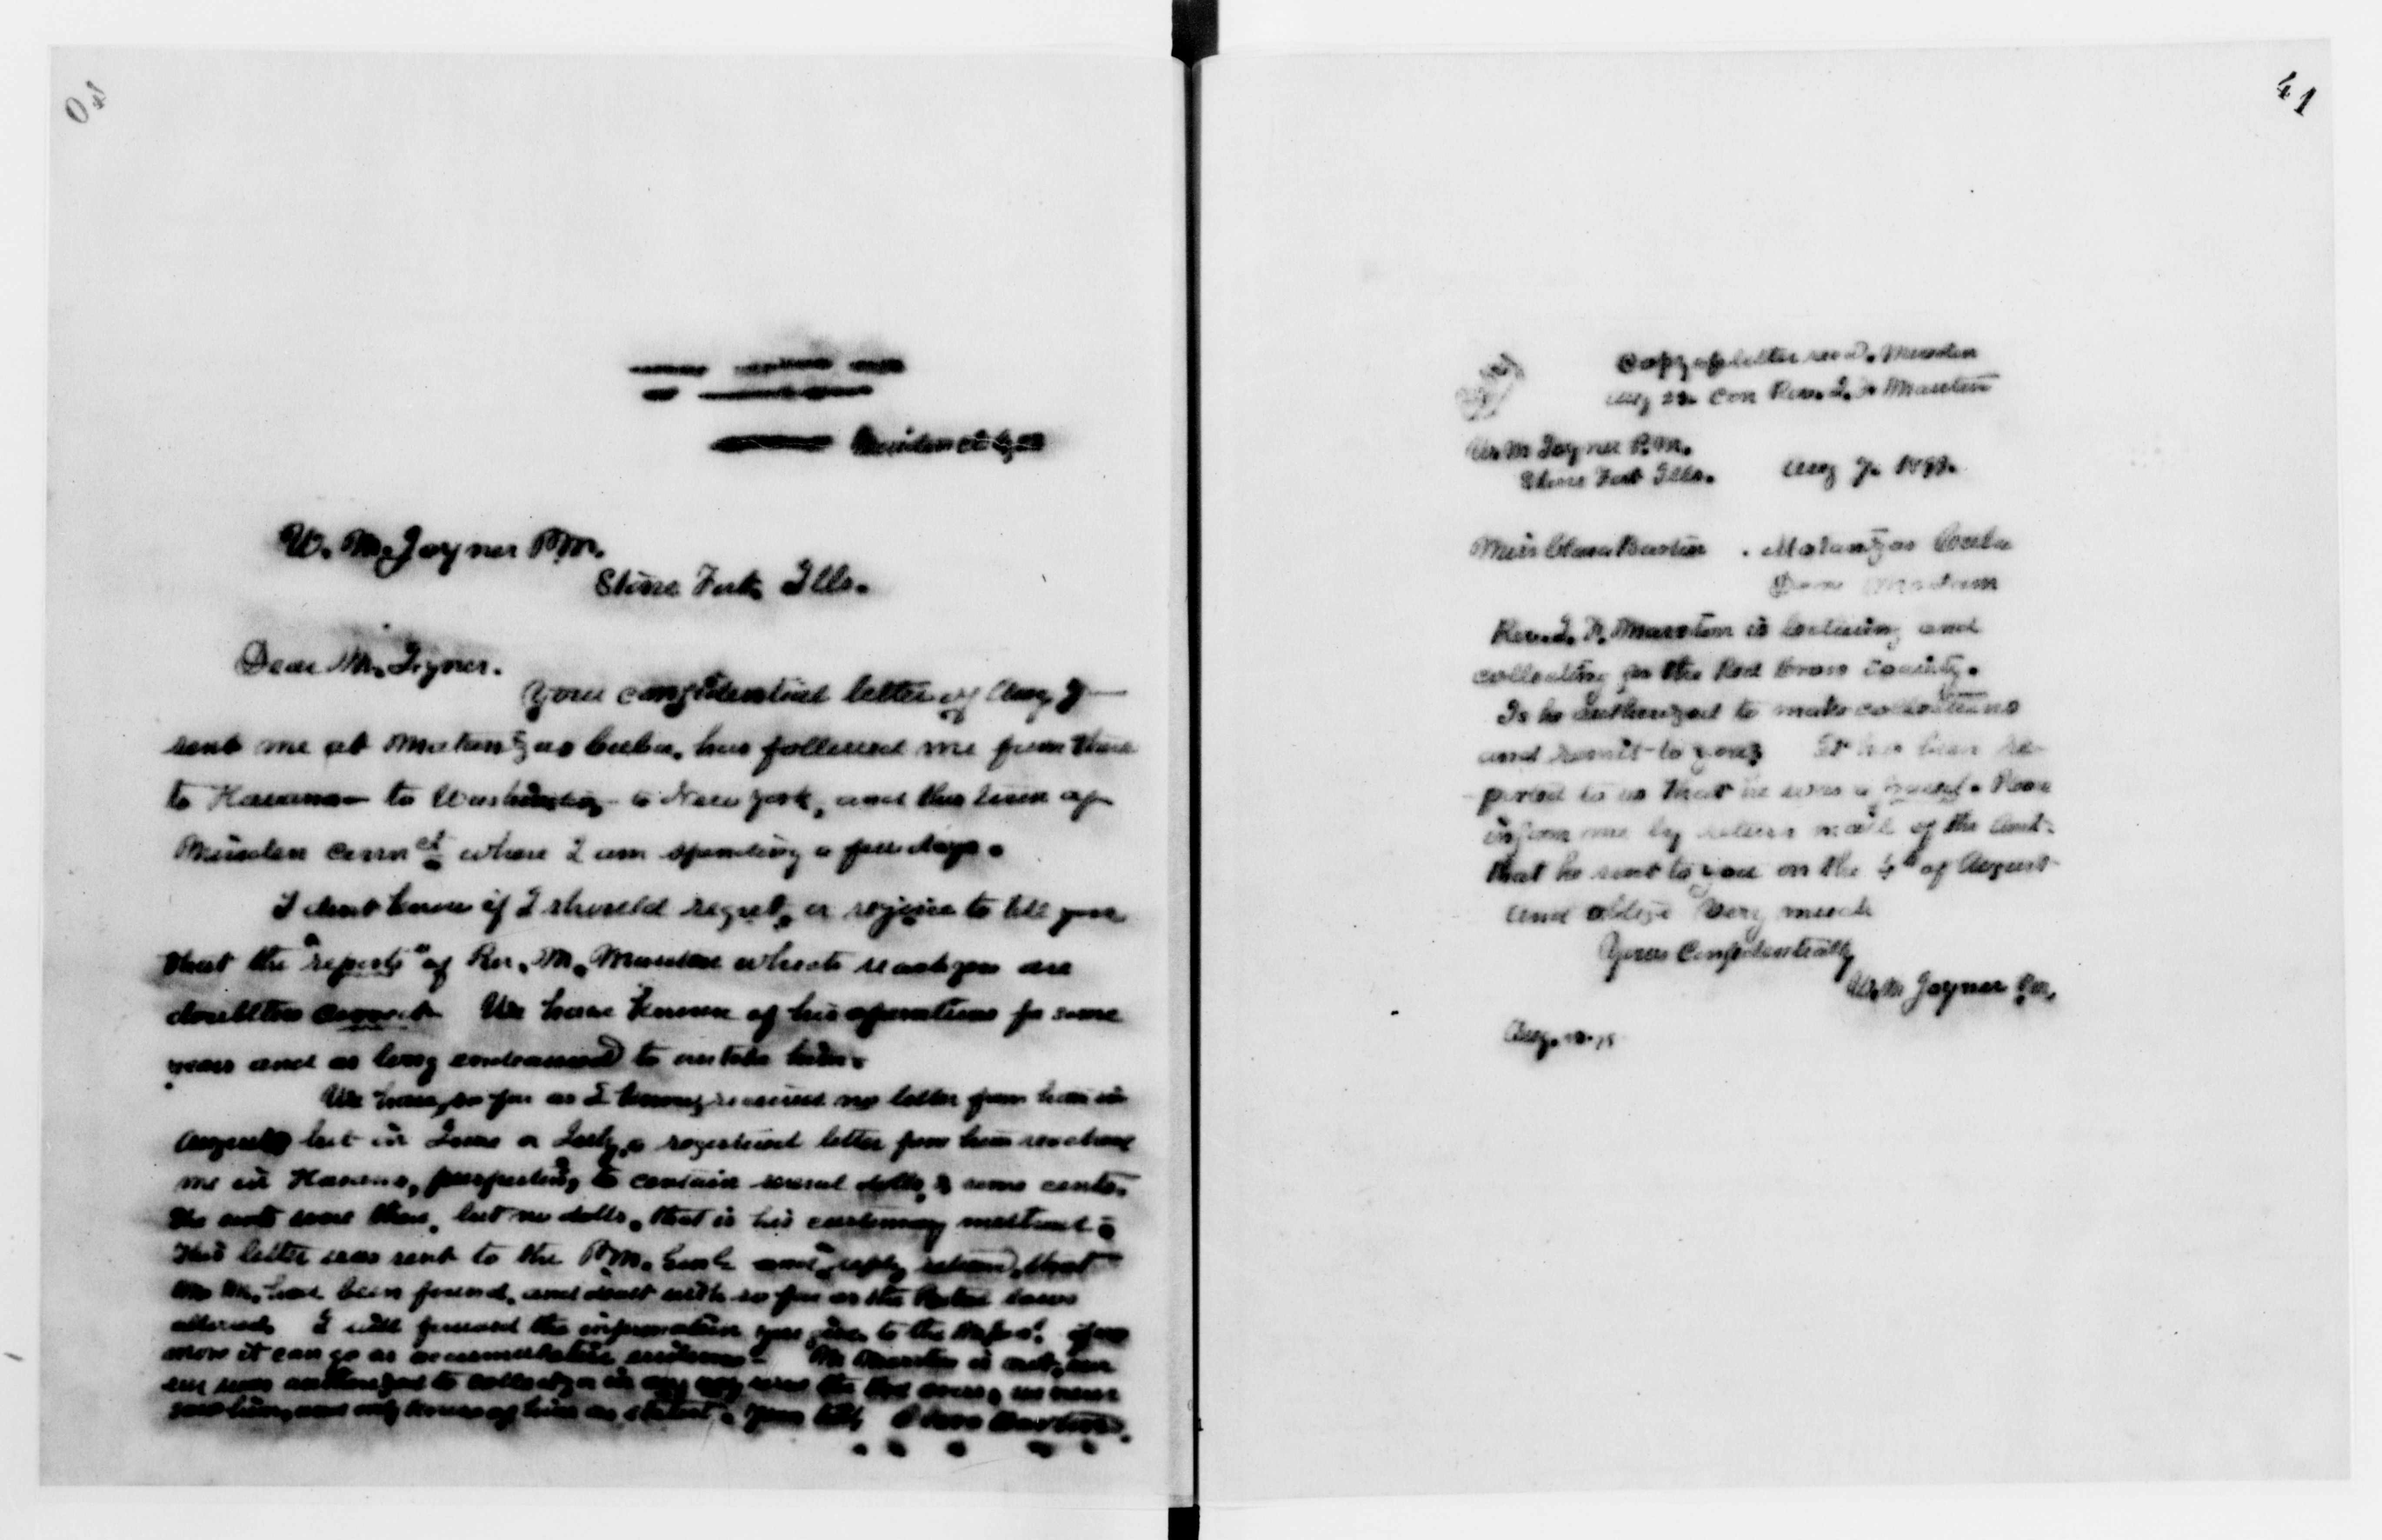 40
W. M. Joyner P.M.
Stone Fort, Ills.
Dear Mr. Joyner.
Your confidential letter of Aug 7
sent me at Matanzas Cuba, has followed me from there
to Havana to Washington to New York, and this time
Meriden Connct where I am spending a few days.
I dont know if I should regret, or rejoice to tell you
that the "reports" of Rev. Mr. which reach you are
doubtless correct. We have known of his operations for some
years and as long endeavored to him.
We have, so far as I know, received no letter from him in
August, but in June or July, a registered letter from him reached
me in Havana, purporting to contain several dolls, & some cents.
The cents were there, but no dolls. that is his customary method.
This letter was sent to the P.M. and reply that
Mr M. had been found, and dealt with so far as the Postal laws
allowed. I will forward the information you give to the
more it can go as accumulative evidence - Mr is not, nor
ever was authorized to collect or in any way the Red Cross, we never
saw him, and only know of him as stated. Yours Clara Barton
41
Copy of letter recd. Meriden
Aug 22. Con Rev.
W. M Joyner P.M.
Stone Fort Ills. Aug 7. 1899.
Miss Clara Barton. Matanzas Cuba
Dear Madam
Rev. is lecturing and
collecting for the Red Cross Society.
Is he authorized to make collections
and remit to you? It has been re-
ported to us that he was a fraud. Please
inform me by return mail of the Amt.
that he sent to you on the 4th of August
and oblige Very much
Yours Confidentially
W. M Joyner P.M.
Aug.